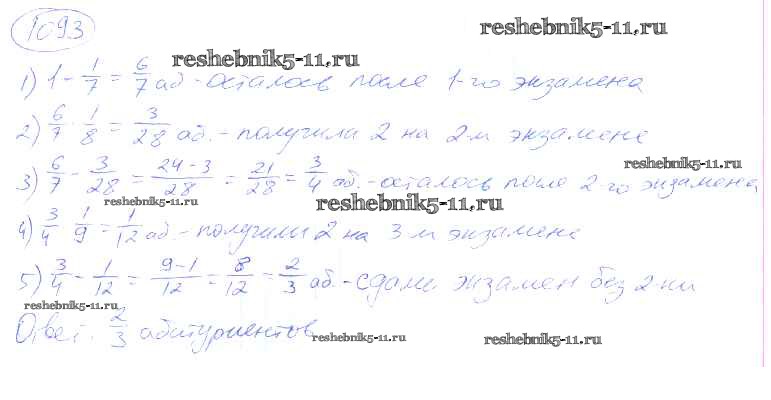 1093
reshebnik5-11.ru
reshebnik5-11.ru
1) 1 - 1/7 = 6/7 аб - осталось после 1-го экзамена
2) 6/7 · 1/8 = 3/28 аб. - получили 2 на 2м экзамене
reshebnik5-11.ru
3) 6/7 - 3/28 = (24-3)/28 = 21/28 = 3/4 аб. - осталось после 2-го экзамена
reshebnik5-11.ru reshebnik5-11.ru
4) 3/4 · 1/9 = 1/12 аб - получили 2 на 3м экзамене
5) 3/4 - 1/12 = (9-1)/12 = 8/12 = 2/3 аб - сдали экзамен без 2-ки
reshebnik5-11.ru
Ответ: 2/3 абитуриентов
reshebnik5-11.ru reshebnik5-11.ru